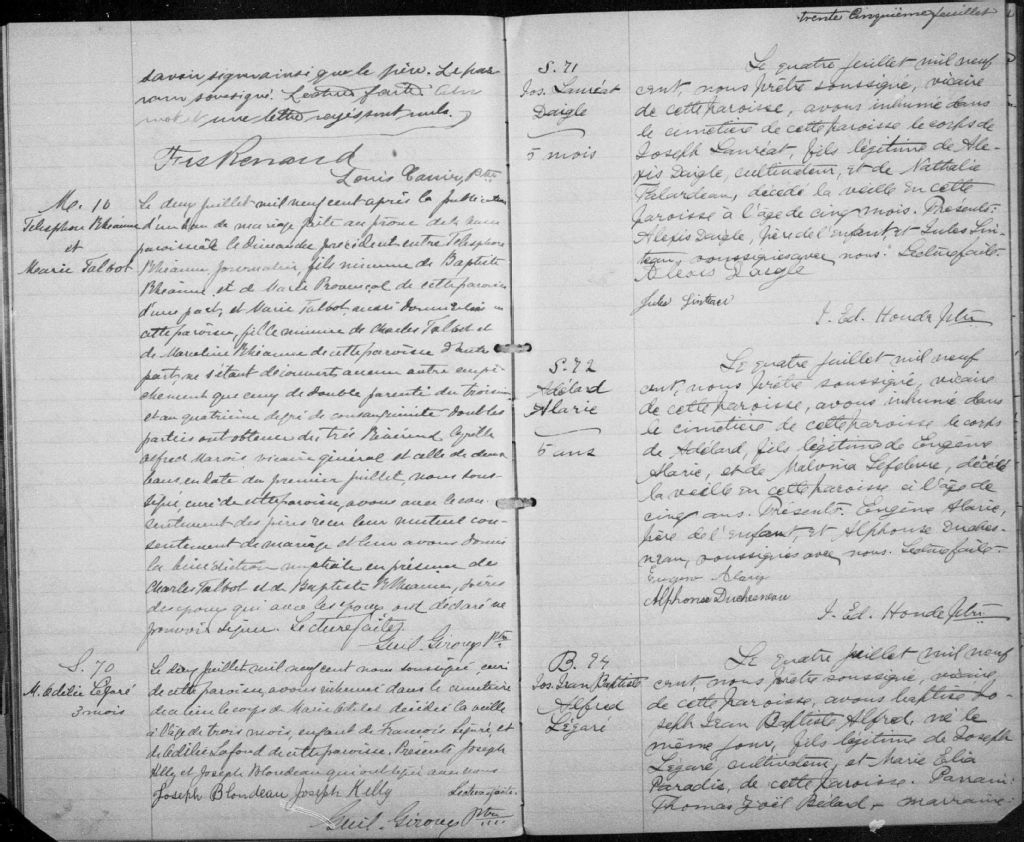 savoir signer ainsi que le père. Le par-
rain soussigné. Lecture faite.
mot et une lettre rayés sont nuls.
Frs Renaud
Louis Ptre
M. 10
Télesphore Rhéaume
et
Marie Talbot
Le deux juillet mil neuf cent après la publication
d'un ban de mariage faite au prône de la messe
paroissiale le dimanche précédent entre Télesphore
Rhéaume, journalier, fils mineur de Baptiste
Rhéaume et de Marie Provençal de cette paroisse
d'une part, et Marie Talbot, aussi domiciliée en
cette paroisse, fille mineure de Charles Talbot et
de Marceline Rhéaume de cette paroisse d'autre
part; ne s'étant découvert aucun autre empê-
chement que ceux de double parenté du troisième
et au quatrième degré de consanguinité dont les
parties ont obtenu du très Révérend Cyrille
Alfred Marois vicaire général et celle de deux
bans en date du premier juillet, nous sous-
signé, curé de cette paroisse, avons avec le con-
sentement des pères reçu leur mutuel con-
sentement de mariage et leur avons donné
la bénédiction nuptiale en présence de
Charles Talbot et de Baptiste Rhéaume, pères
des époux qui avec les époux ont déclaré ne
pouvoir signer. Lecture faite.
Guil. Giroux Ptre
S. 70
M. Adélie Légaré
3 mois
Le deux juillet mil neuf cent nous soussigné curé
de cette paroisse, avons inhumé dans le cimetière
le corps de Marie décédée la veille
à l'âge de trois mois, enfant de François Légaré et
de Adélie Lafond de cette paroisse. Présents Joseph
Kelly et Joseph Blondeau qui ont signé avec nous
Joseph Blondeau Joseph Killy Lecture faite.
Guil. Giroux Ptre
trente cinquième feuillet
S. 71
Jos. Lauréat
Daigle
5 mois
Le quatre juillet mil neuf
cent, nous prêtre soussigné, vicaire
de cette paroisse, avons inhumé dans
le cimetière de cette paroisse le corps de
Joseph Lauréat, fils légitime de Ale-
xis Daigle, cultivateur, et de Nathalie
Falardeau, décédé la veille en cette
paroisse à l'âge de cinq mois. Présents:
Alexis Daigle, père de l'enfant et Jules Lin-
teau, soussignés avec nous. Lecture faite.
Alexis Daigle
Jules Linteau
J. Ed. Honde Ptre
S. 72
Adélard
Alarie
5 ans
Le quatre juillet mil neuf
cent, nous prêtre soussigné, vicaire
de cette paroisse, avons inhumé dans
le cimetière de cette paroisse le corps
de Adélard, fils légitime de Eugène
Alarie, et de Malvina Lefebvre, décédé
la veille en cette paroisse à l'âge de
cinq ans. Présents: Eugène Alarie,
père de l'enfant, et Alphonse Duches-
neau, soussignés avec nous. Lecture faite.
Eugene Alary
Alphonse Duchesneau
J. Ed. Honde Ptre
B. 94
Jos. Jean Baptiste
Alfred
Légaré
Le quatre juillet mil neuf
cent, nous prêtre soussigné, vicaire
de cette paroisse, avons baptisé Jo-
seph Jean Baptiste Alfred, né le
même jour, fils légitime de Joseph
Légaré, cultivateur, et Marie Elia
Paradis, de cette paroisse. Parrain:
Thomas Joël Bédard, marraine: